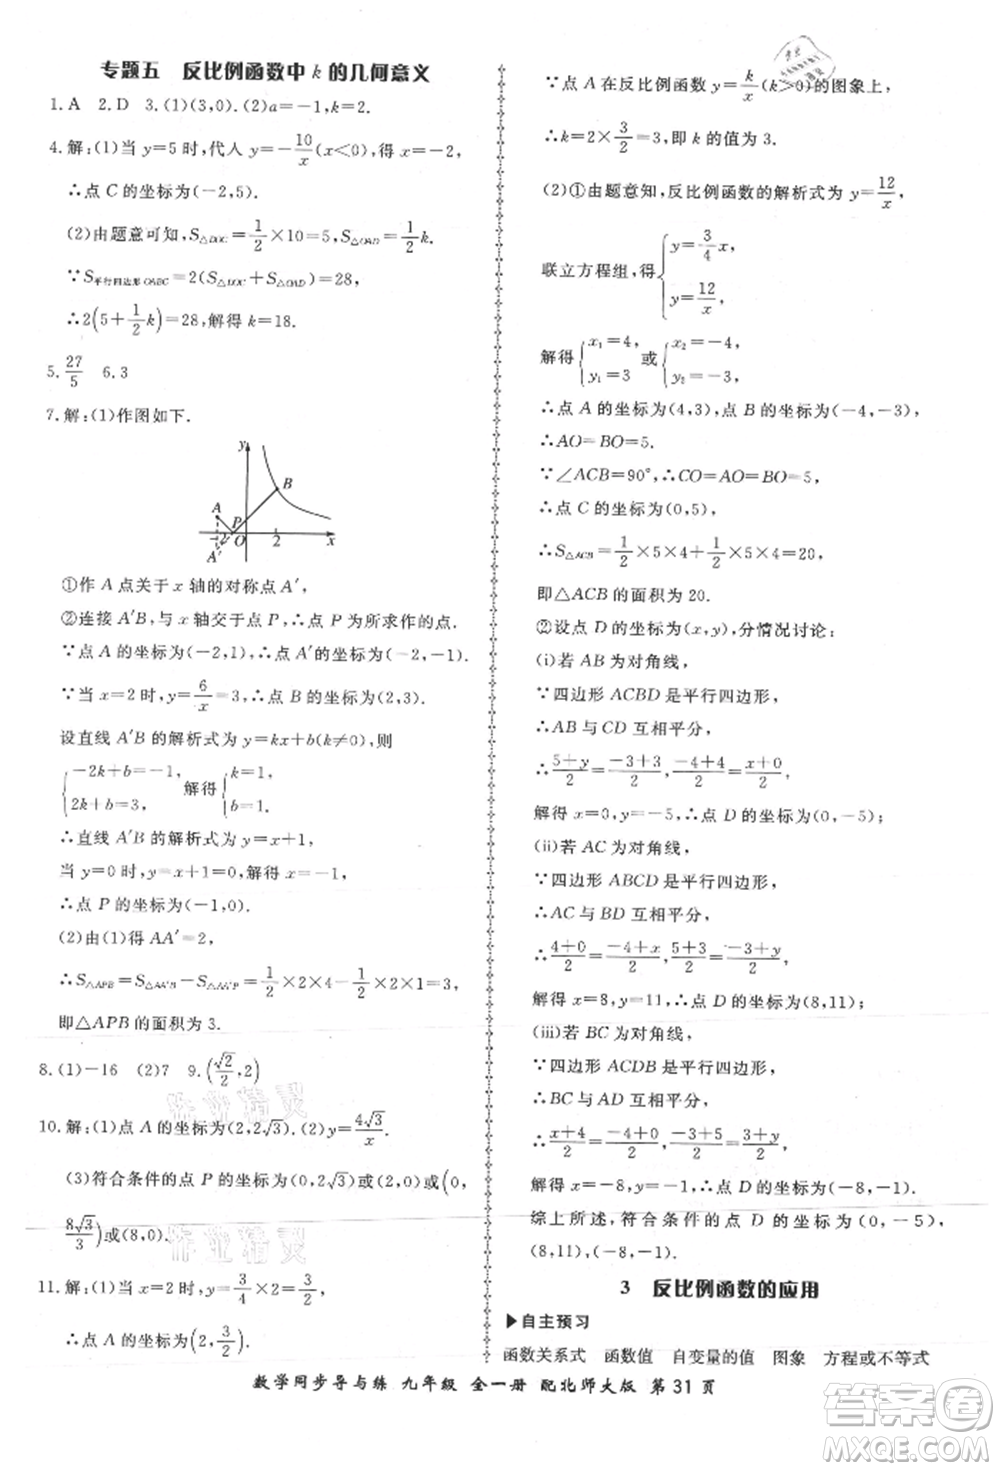 专题五　反比例函数中 k 的几何意义
1.A　2.D　3.(1)(3,0).(2)a=-1,k=2.
4.解:(1)当 y=5 时,代入 y=-10/x(x<0),得 x=-2,
∴点 C 的坐标为(-2,5).
(2)由题意可知,S△BOC=1/2×10=5,S△OAD=1/2k.
∵S平行四边形OABC=2(S△BOC+S△OAD)=28,
∴2(5+1/2k)=28,解得 k=18.
5.27/5　6.3
7.解:(1)作图如下.
y
B
A
P
-2
O
2
x
A′
①作 A 点关于 x 轴的对称点 A′,
②连接 A′B,与 x 轴交于点 P,∴点 P 为所求作的点.
∵点 A 的坐标为(-2,1),∴点 A′的坐标为(-2,-1).
∵当 x=2 时,y=6/x=3,∴点 B 的坐标为(2,3).
设直线 A′B 的解析式为 y=kx+b(k≠0),则
{-2k+b=-1, 2k+b=3, 解得{k=1, b=1.
∴直线 A′B 的解析式为 y=x+1,
当 y=0 时,y=x+1=0,解得 x=-1,
∴点 P 的坐标为(-1,0).
(2)由(1)得 AA′=2,
∴S△APB=S△AA′B-S△AA′P=1/2×2×4-1/2×2×1=3,
即△APB 的面积为 3.
8.(1)-16　(2)7　9.(√2/2,2)
10.解:(1)点 A 的坐标为(2,2√3).(2)y=4√3/x.
(3)符合条件的点 P 的坐标为(0,2√3)或(4,0)或(0,
8√3/3)或(8,0).
11.解:(1)当 x=2 时,y=3/4×2=3/2,
∴点 A 的坐标为(2,3/2).
∵点 A 在反比例函数 y=k/x(k>0)的图象上,
∴k=2×3/2=3,即 k 的值为 3.
(2)①由题意知,反比例函数的解析式为 y=12/x,
联立方程组,得{y=3/4x, y=12/x,
解得{x₁=4, y₁=3 或{x₂=-4, y₂=-3,
∴点 A 的坐标为(4,3),点 B 的坐标为(-4,-3),
∴AO=BO=5.
∵∠ACB=90°,∴CO=AO=BO=5,
∴点 C 的坐标为(0,5),
∴S△ACB=1/2×5×4+1/2×5×4=20,
即△ACB 的面积为 20.
②设点 D 的坐标为(x,y),分情况讨论:
(i)若 AB 为对角线,
∵四边形 ACBD 是平行四边形,
∴AB 与 CD 互相平分,
∴5+y/2=-3+3/2,-4+4/2=x+0/2,
解得 x=0,y=-5,∴点 D 的坐标为(0,-5);
(ii)若 AC 为对角线,
∵四边形 ABCD 是平行四边形,
∴AC 与 BD 互相平分,
∴4+0/2=-4+x/2,5+3/2=-3+y/2,
解得 x=8,y=11,∴点 D 的坐标为(8,11);
(iii)若 BC 为对角线,
∵四边形 ACDB 是平行四边形,
∴BC 与 AD 互相平分,
∴x+4/2=-4+0/2,-3+5/2=y+3/2,
解得 x=-8,y=-1,∴点 D 的坐标为(-8,-1).
综上所述,符合条件的点 D 的坐标为(0,-5),
(8,11),(-8,-1).
3　反比例函数的应用
▶自主预习
函数关系式　函数值　自变量的值　图象　方程或不等式
数学同步导与练 九年级 全一册 配北师大版 第31页
作业精灵
作业精灵
答案卷
MXQE.COM